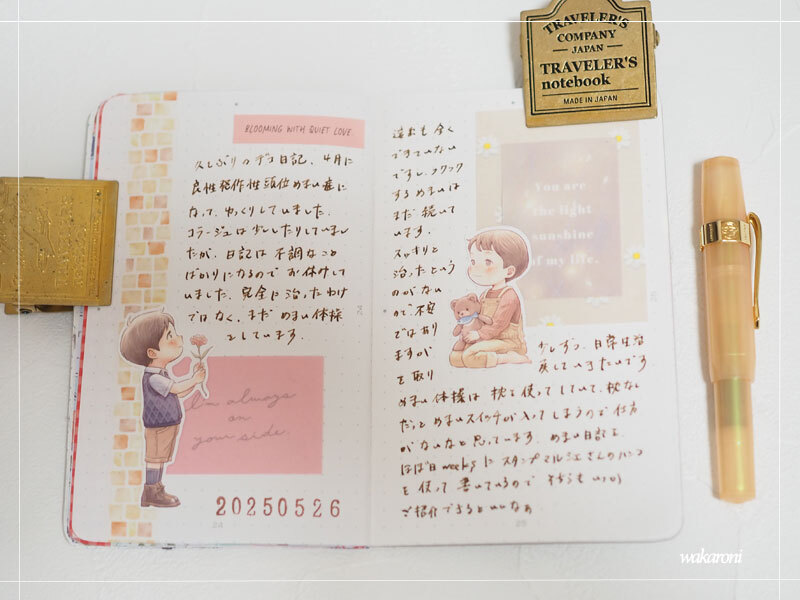 BLOOMING WITH QUIET LOVE.
久しぶりのデコ日記。4月に
良性発作性頭位めまい症に
なって、ゆっくりしていました。
コラージュは少ししたりしていまし
たが、日記は不調なこと
ばかりになるのでお休みして
いました。完全に治ったわけ
ではなく、まだめまい体操
をしています。
I'm always
on
your side.
20250526
24
運動も全く
できていない
ですし、クラクラ
するめまいは
まだ続いて
います。
スッキリと
治ったという
のがない
ので不安
ではあり
ますが
少しずつ、日常生活
を取り
戻していきたいです。
めまい体操は枕を使ってしていて、枕なし
だとめまいスイッチが入ってしまうので仕方
がないなと思っています。めまい日記を
ほぼ日weeksにスタンプマルシェさんのハンコ
を使って書いているのでそちらもいつか
ご紹介できるといいなぁ。
25
You are
the light
sunshine
of my life.
TRAVELER'S
COMPANY
JAPAN
TRAVELER'S
notebook
MADE IN JAPAN
wakaroni